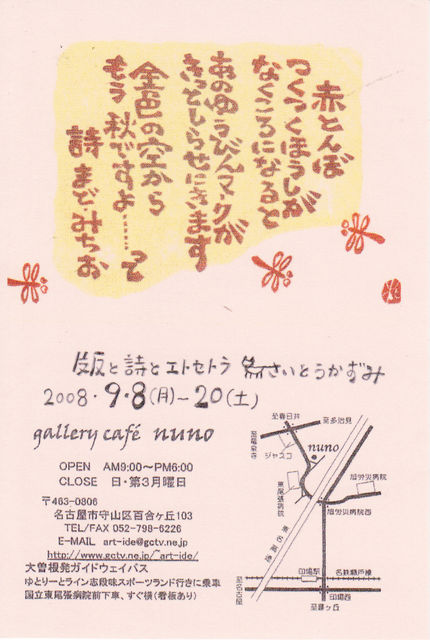 赤とんぼ
つくつくほうしが
なくころになると
あのゆうびんマークが
きっとしらせにきます
金色の空から
もう秋ですよ……って
詩 まどみちお
版と詩とエトセトラ さいとうかずみ
2008・9・8(月)~20(土)
gallery café nuno
OPEN AM9:00~PM6:00
CLOSE 日・第3月曜日
〒463-0806
名古屋市守山区百合ヶ丘103
TEL/FAX 052-798-6226
E-MAIL art-ide@gctv.ne.jp
http://www.gctv.ne.jp/~art-ide/
大曽根発ガイドウェイバス
ゆとりーとライン志段味スポーツランド行きに乗車
国立東尾張病院前下車、すぐ横(看板あり)
至春日井
至多治見
至竜泉寺
nuno
ジャスコ
東尾張病院
旭労災病院
旭労災病院西
東名高速
印場駅
名鉄瀬戸線
印場西
至藤ヶ丘